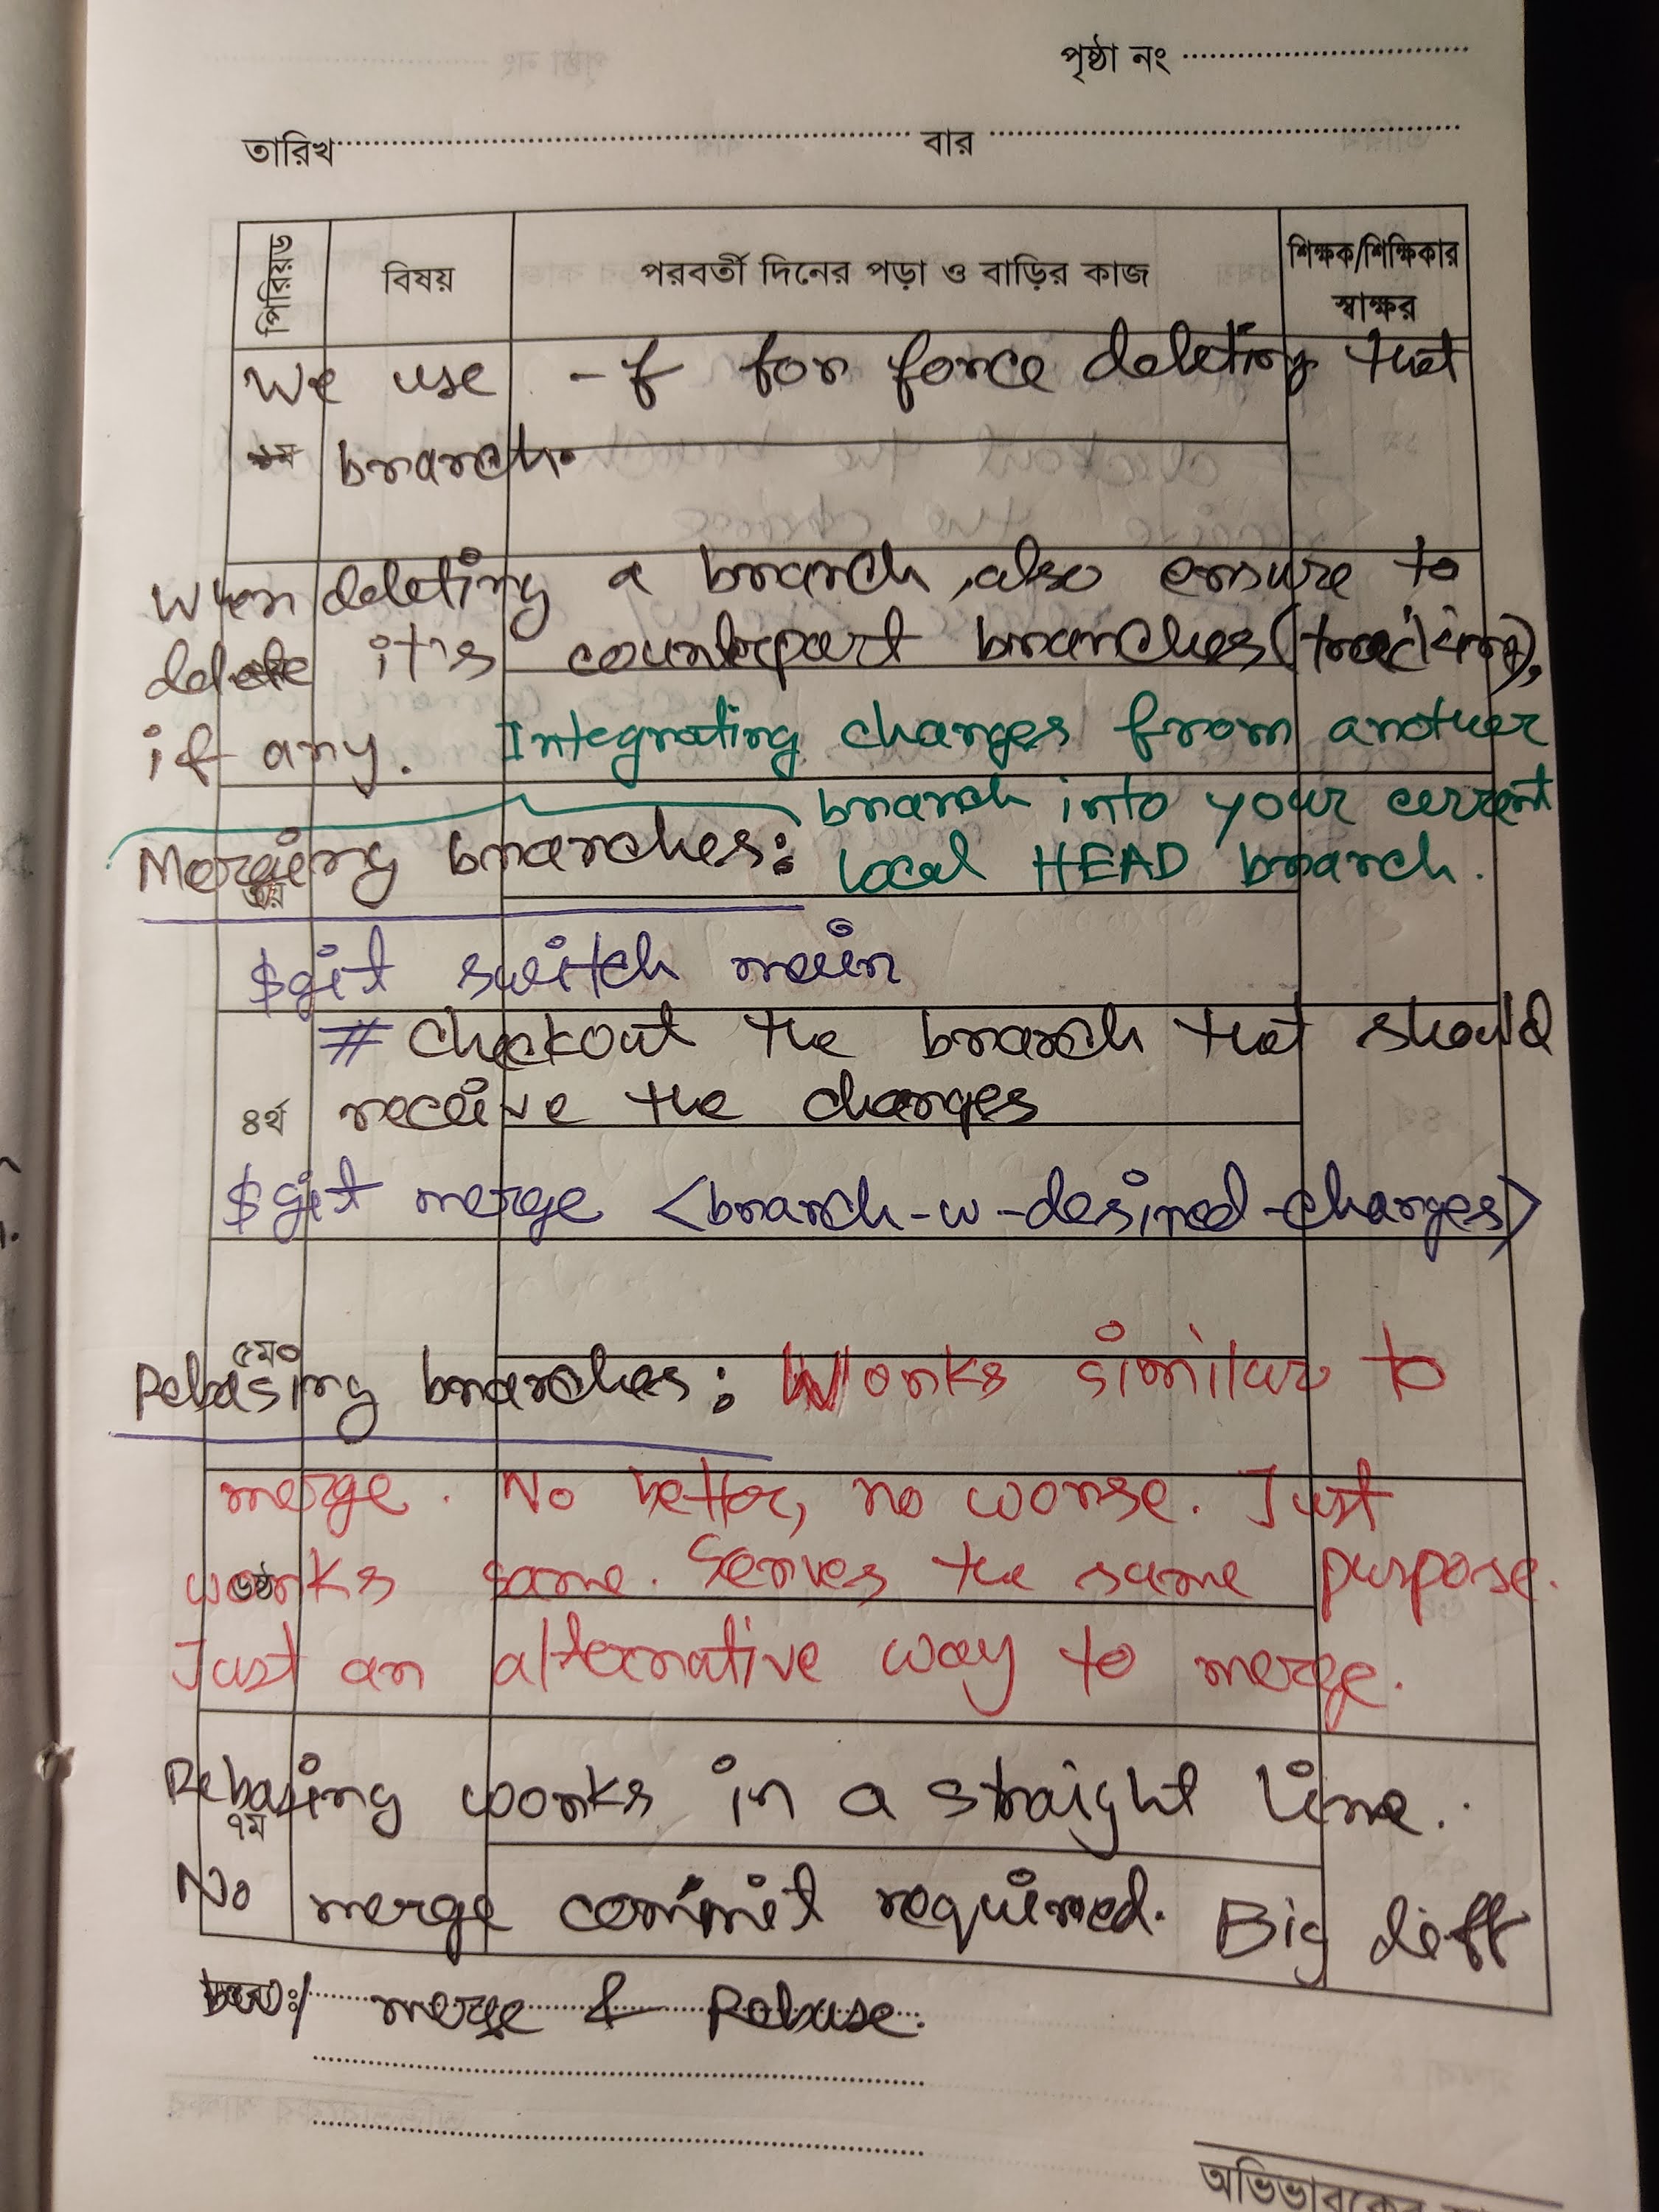 পৃষ্ঠা নং
তারিখ বার
পিরিয়ড বিষয় পরবর্তী দিনের পড়া ও বাড়ির কাজ শিক্ষক/শিক্ষিকার স্বাক্ষর
We use -f for force deleting that
branch.
When deleting a branch, also ensure to
delete it's counterpart branches (tracking),
if any.
Merging branches: Integrating changes from another
branch into your current
local HEAD branch.
$git switch main
# Checkout the branch that should
৪র্থ receive the changes
$git merge <branch-w-desired-changes>
৫ম
Rebasing branches: Works similar to
merge. No better, no worse. Just
৬ষ্ঠ
works same. Serves the same purpose.
Just an alternative way to merge.
Rebasing works in a straight line.
৭ম
No merge commit required. Big diff
b/w merge & Rebase.